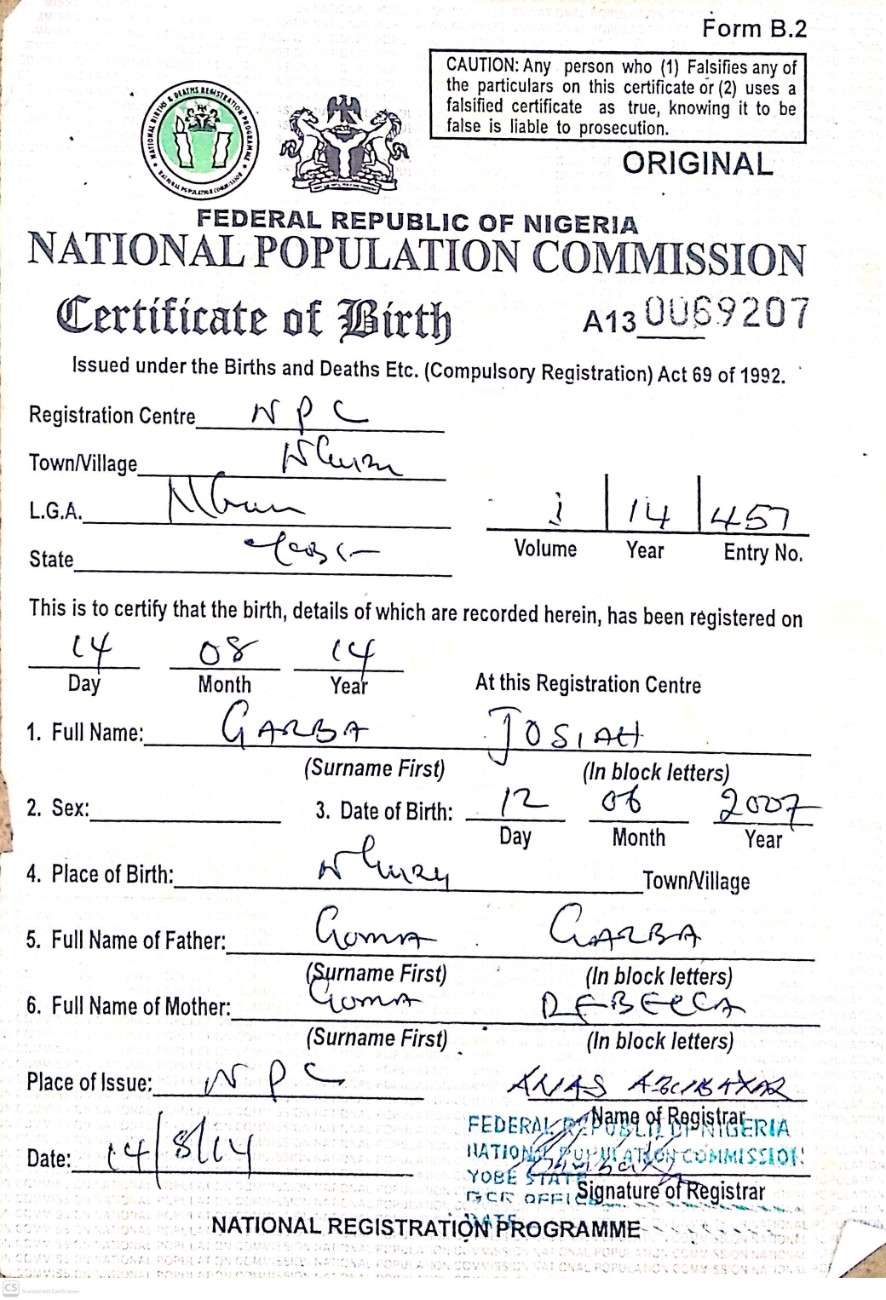 Form B.2
CAUTION: Any person who (1) Falsifies any of
the particulars on this certificate or (2) uses a
falsified certificate as true, knowing it to be
false is liable to prosecution.
ORIGINAL
NATIONAL BIRTHS & DEATHS REGISTRATION PROGRAMME
NATIONAL POPULATION COMMISSION
FEDERAL REPUBLIC OF NIGERIA
NATIONAL POPULATION COMMISSION
Certificate of Birth A13 0069207
Issued under the Births and Deaths Etc. (Compulsory Registration) Act 69 of 1992.
Registration Centre NPC
Town/Village
L.G.A.
State Yobe
1 14 457
Volume Year Entry No.
This is to certify that the birth, details of which are recorded herein, has been registered on
14 08 14
Day Month Year At this Registration Centre
1. Full Name: GARBA JOSIAH
(Surname First) (In block letters)
2. Sex: 3. Date of Birth: 12 06 2007
Day Month Year
4. Place of Birth: Town/Village
5. Full Name of Father: Goma GARBA
(Surname First) (In block letters)
6. Full Name of Mother: Goma REBECCA
(Surname First) (In block letters)
Place of Issue: NPC ANAS ABUBAKAR
Name of Registrar
FEDERAL REPUBLIC OF NIGERIA
NATIONAL POPULATION COMMISSION
YOBE STATE
Date: 14/8/14
Signature of Registrar
DATE
NATIONAL REGISTRATION PROGRAMME
CS